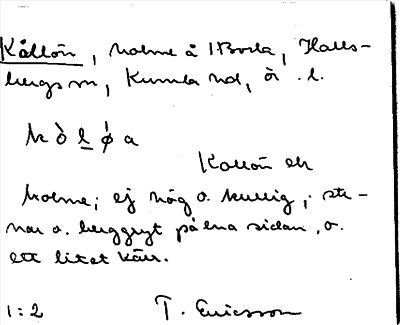 Kållön, holme å 1 Borta, Halls-
bergs sn, Kumla hd, Ör. l.
k ò l ø a
Kallön etc
holme; ej hög o. kullig; ste-
nar o. berggryt på ena sidan, o.
ett litet kärr.
1:2 T. Ericsson